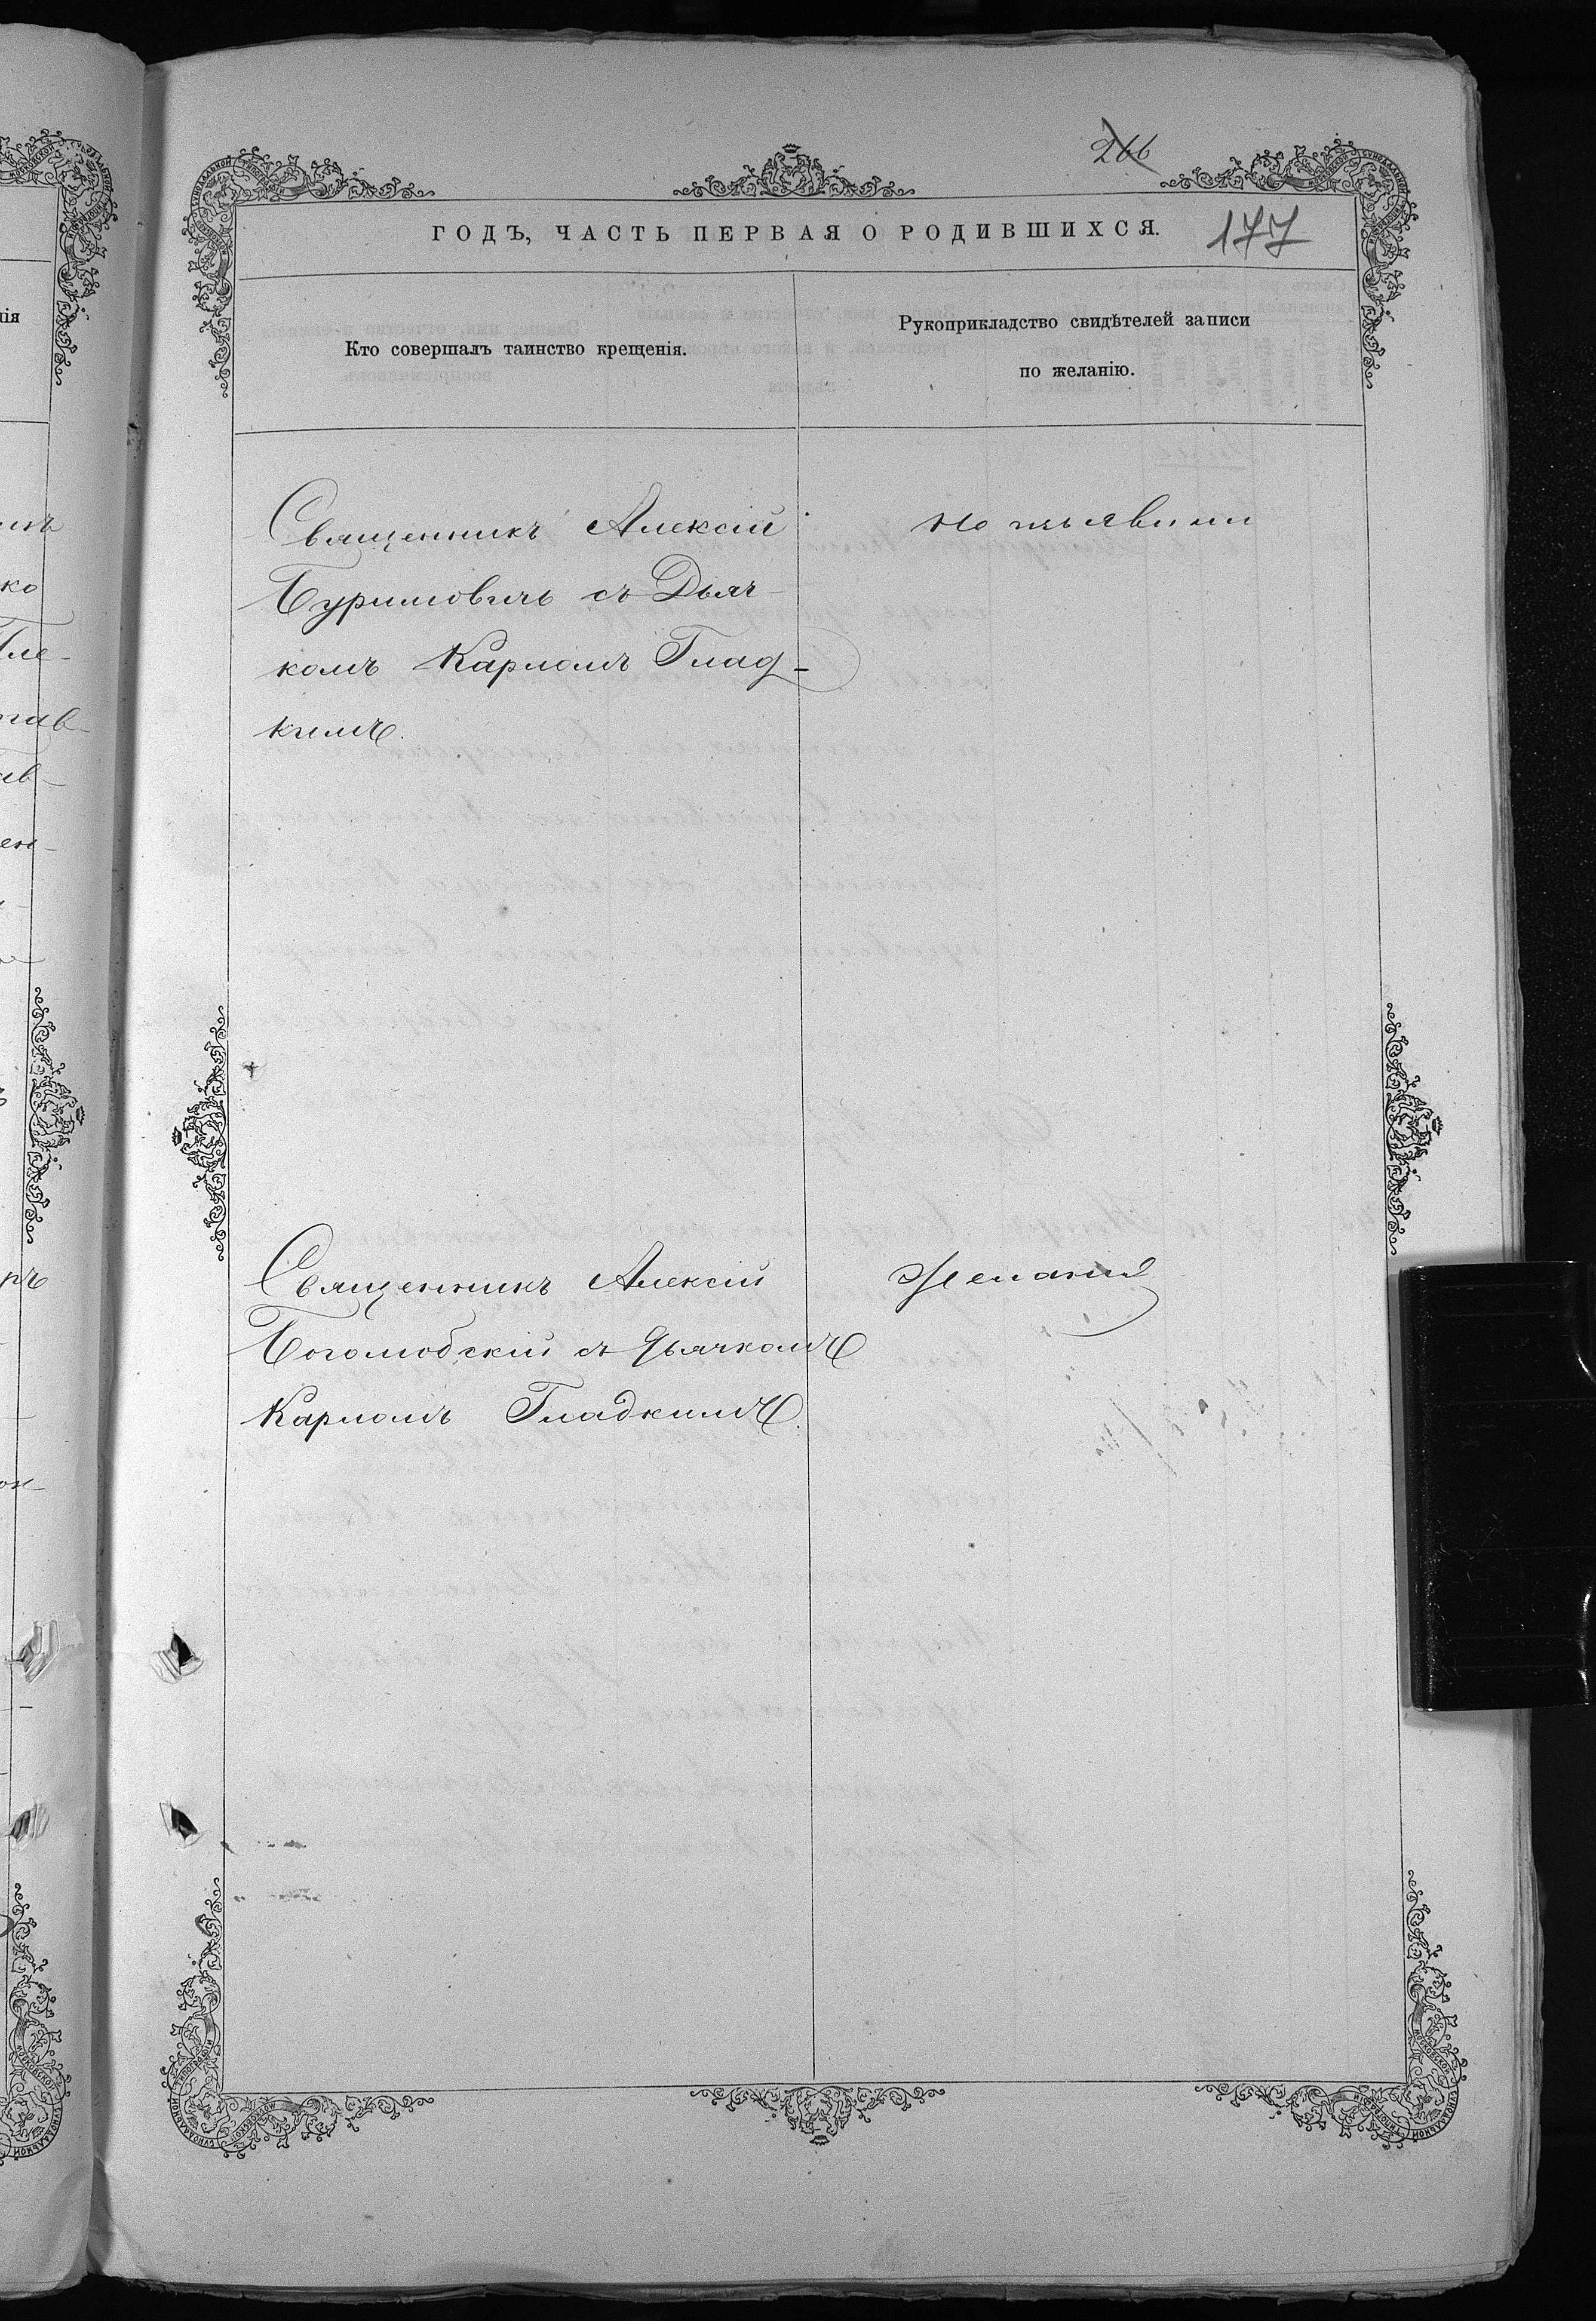 266
ГОДЪ, ЧАСТЬ ПЕРВАЯ О РОДИВШИХСЯ.
177
Кто совершалъ таинство крещенія.
Рукоприкладство свидѣтелей записи
по желанію.
Священникъ Алексій
съ Дьяч-
комъ Карпомъ Глад-
кимъ.
Не изъявили
Священникъ Алексій
Боголюбскій съ дьячкомъ
Карпомъ Гладкимъ.
Желанія